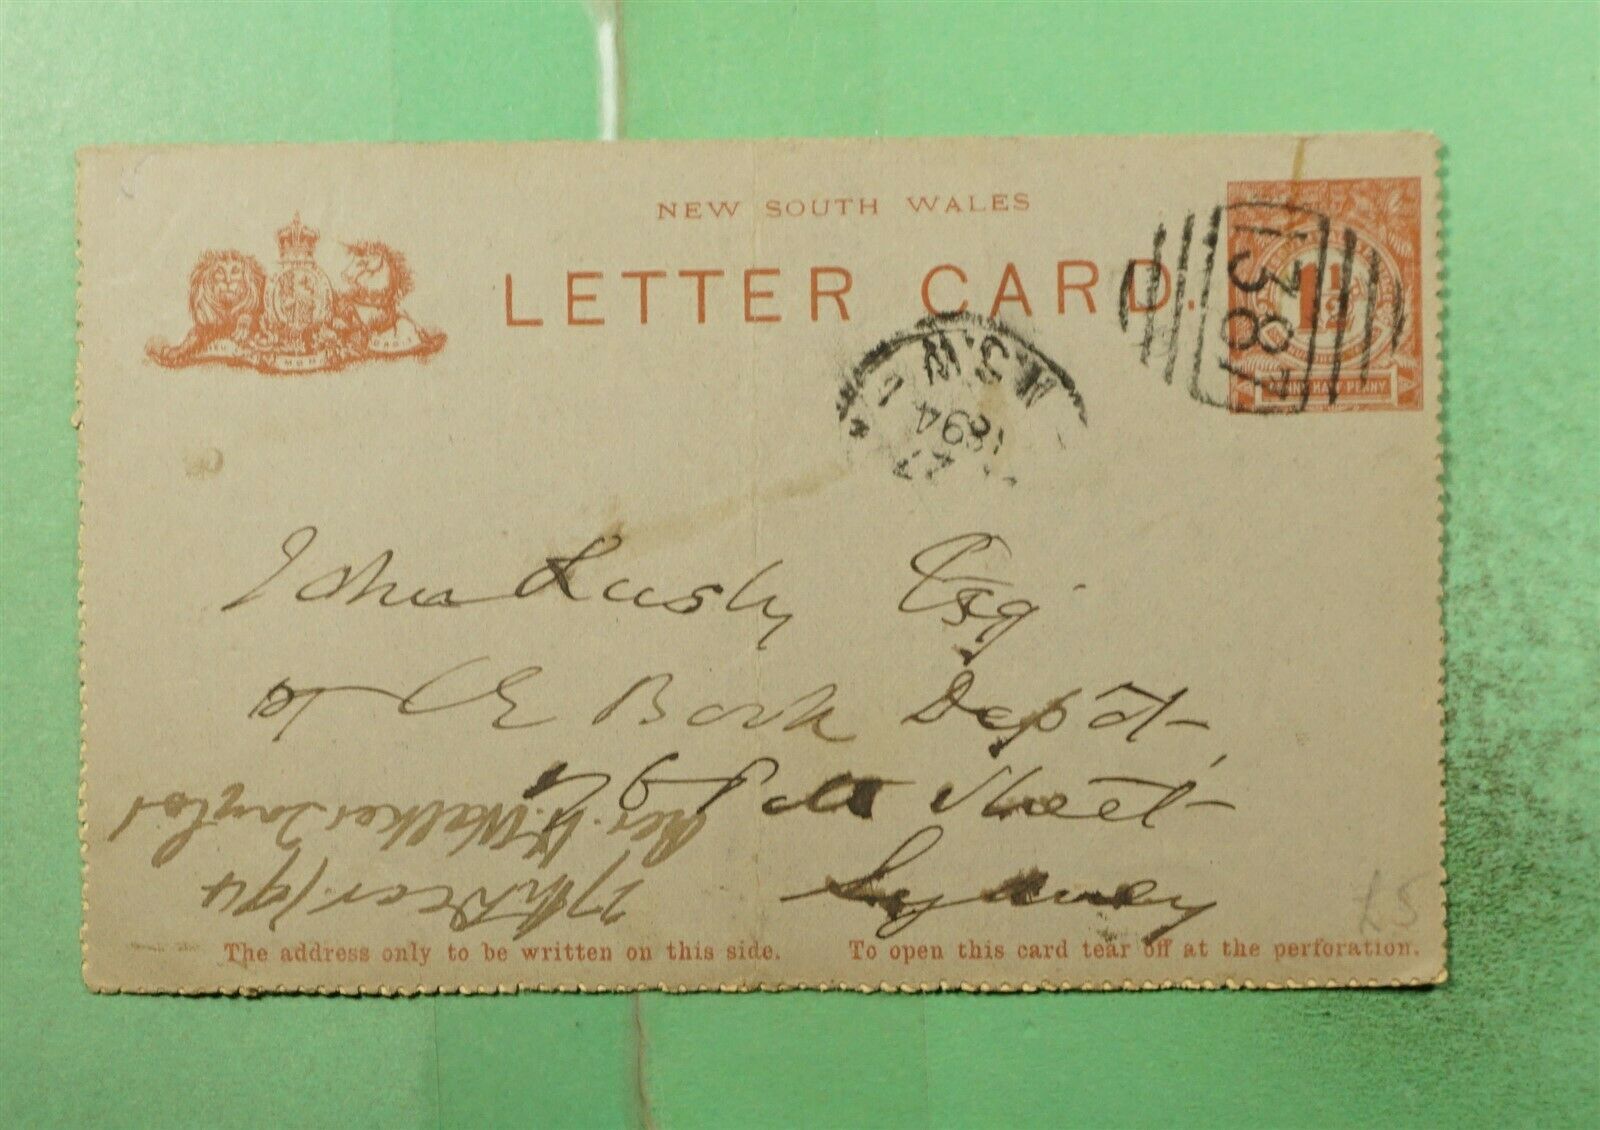 NEW SOUTH WALES
LETTER CARD.
1½
PENNY HALF PENNY
1381
N.S.W
1894
John Rusby Esq
C E Book Depôt
Pitt Street
Sydney
27th Decer/94
Rev. H. Walker Taylor
The address only to be written on this side.
To open this card tear off at the perforation.
£5